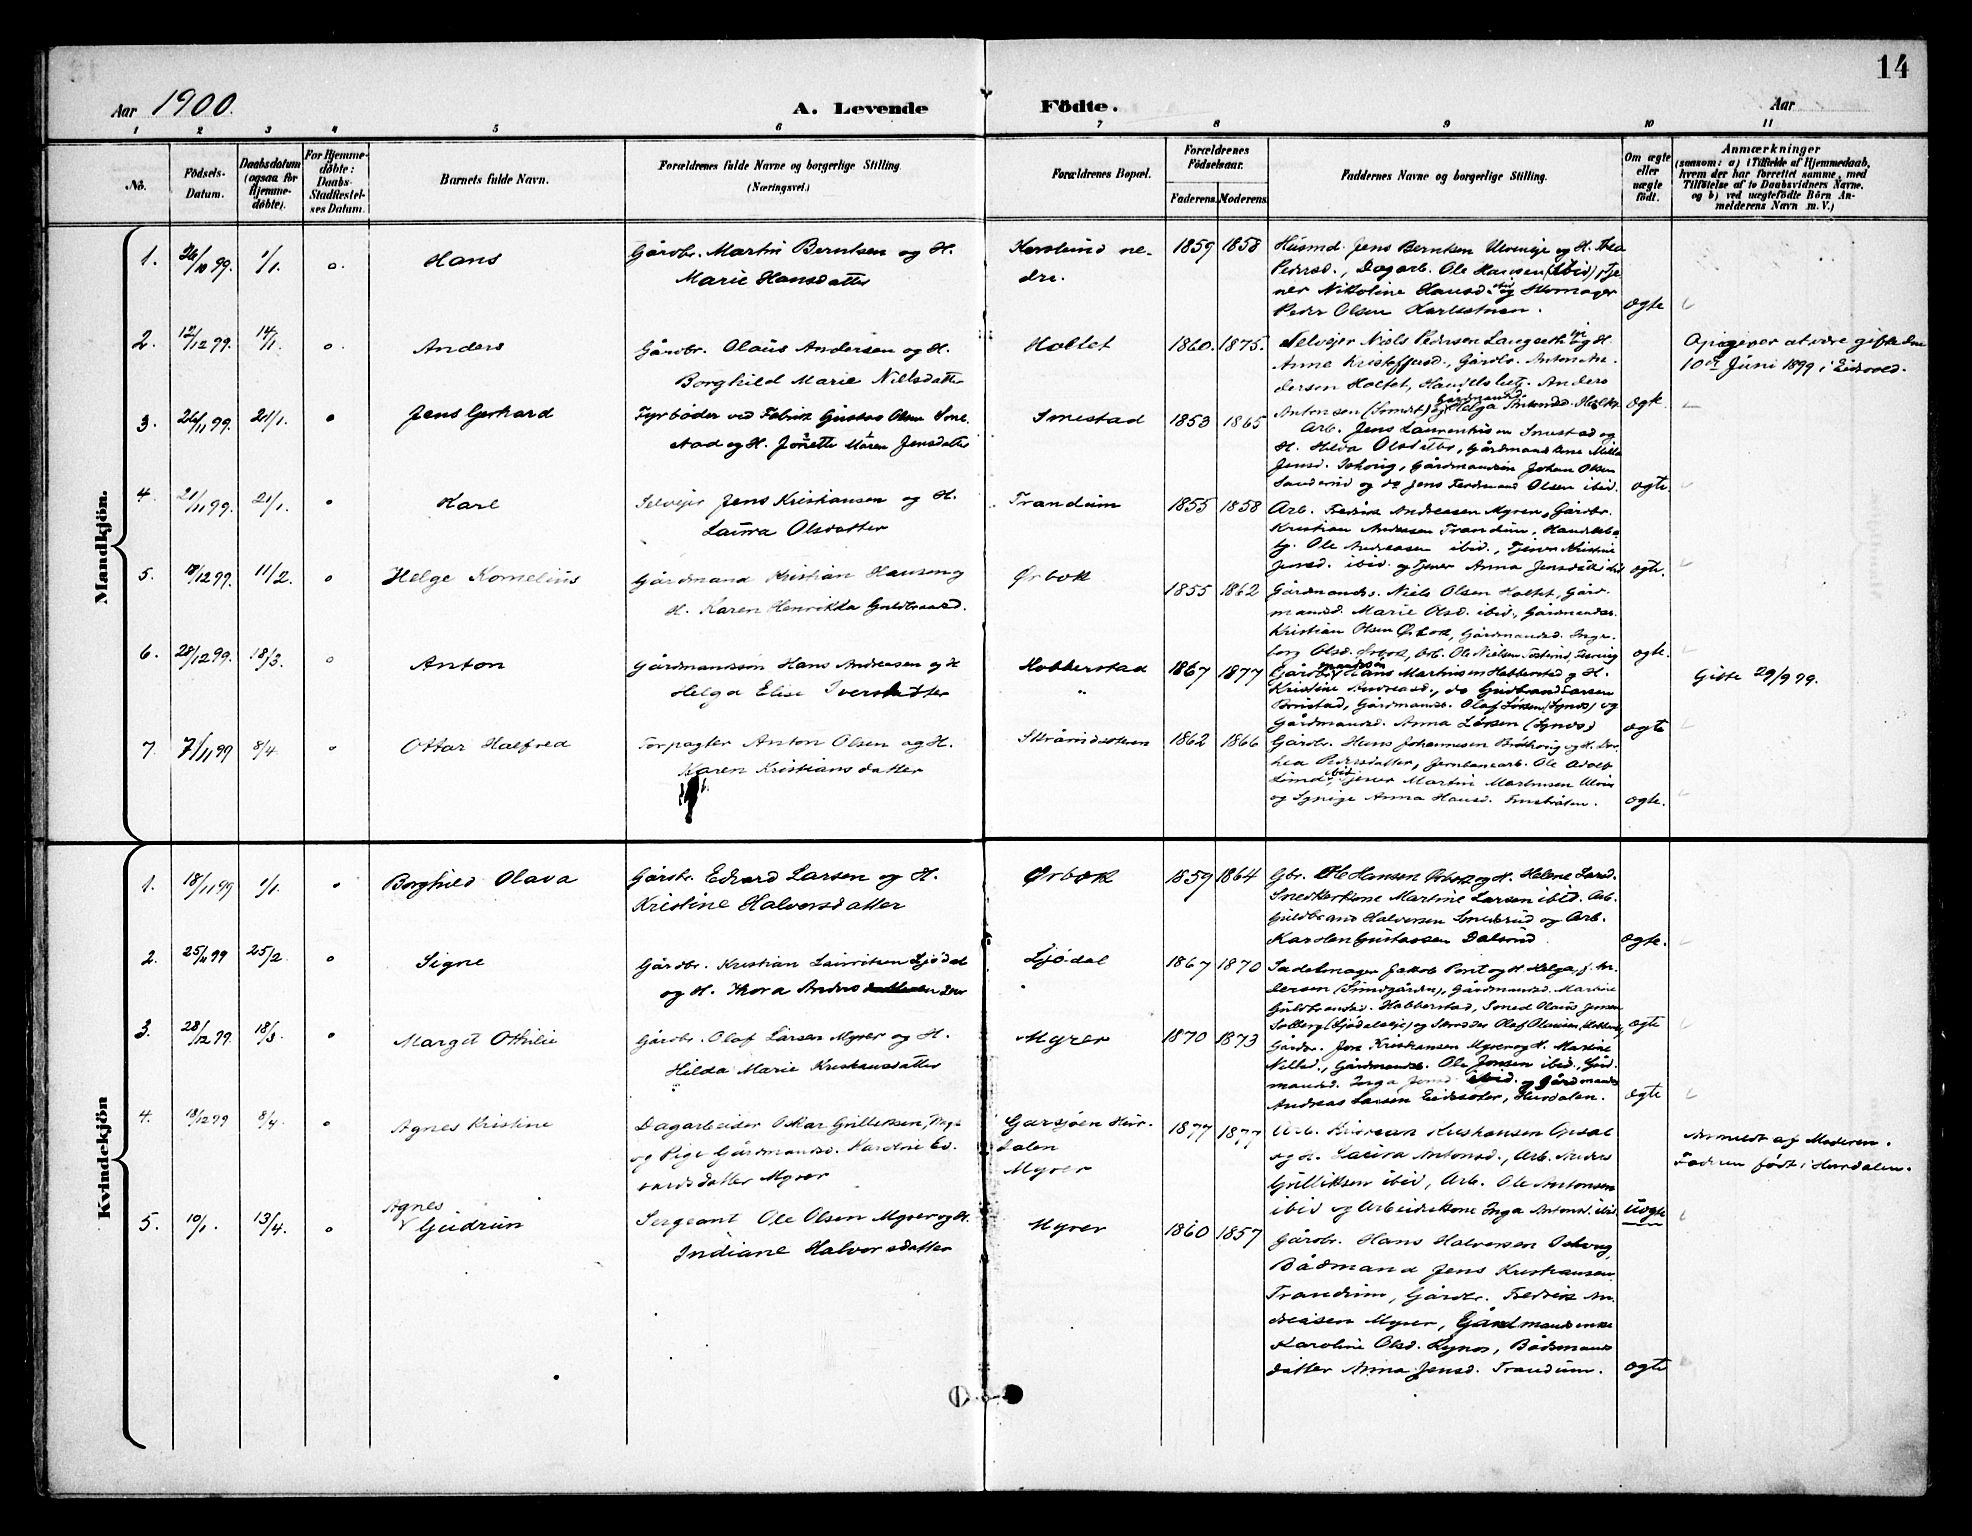 14
Aar 1900.
A. Levende Födte.
Aar
1 2 3 4 5 6 7 8 9 10 11
No.
Födsels-Datum.
Daabsdatum (ogsaa for Hjemmedøbte).
For Hjemmedøbte: Daabs-Stadfæstelses Datum.
Barnets fulde Navn.
Forældrenes fulde Navne og borgerlige Stilling.
(Næringsvei.)
Forældrenes Bopæl.
Forældrenes Födselsaar.
Faderens. Moderens.
Faddernes Navne og borgerlige Stilling.
Om ægte eller uægte födt.
Anmærkninger
(saasom: a) i Tilfælde af Hjemmedaab,
hvem der har forrettet samme, med
Tilföielse af to Daabsvidners Navne.
og b) ved uægtefödte Börn An-
melderens Navn m. V.)
Mandkjön.
1. 26/10 99. 1/1. o. Hans
Gårdbr. Martin Berntsen og H.
Marie Hansdatter
nedre.
1859 1858
Husmd. Jens Berntsen og H. Thea
Pedersd., Dagarb. Ole Hansen (ibid), Tje-
ner Nikoline Hansd. ibid og Skomager
Peder Olsen
ægte
2. 12/12 99. 14/1. o. Anders
Gårdbr. Olaus Andersen og H.
Borghild Marie Nielsdatter
Holtet
1860. 1875.
Selveier Niels Pedersen Langseth og H.
Anne Kristoffersd., Gårdbr. Anton An-
dersen Holtet, Handelsbet. Anders
Antonsen og Helga Antonsd.
ægte
Opgiver at være gift den
10de Juni 1899 i Eidsvold.
3. 26/11 99. 21/1. o Jens Gerhard
Fyrbøder ved Fabrik Gustav Olsen Sme-
stad og H. Jonette Maren Jensdatter
Smestad
1853 1865
Arb. Jens Laurentsisen Smestad og
H. Hilda Olsdatter, Gårdmandskone
Jensd. Gårdmandssøn Johan Olsen
og do Jens Ferdinand Olsen ibid.
ægte.
4. 21/11 99. 21/1. o Karl
Selveier Jens Kristiansen og H.
Laura Olsdatter
Trandum
1855 1858
Arb. Fredrik Andreasen Myrer, Gårdbr.
Kristian Andersen Trandum, Handelsbe-
tj. Ole Andreasen ibid., Tjener Kristine
Jensd. ibid og Tjener Anna Jensdatter ibid
ægte.
5. 18/12 99. 11/2. o Helge Kornelius
Gårdmand Kristian Hansen og
H. Karen Henrikka Guldbrandsd.
Ørbæk
1855 1862
Gårdmands. Niels Olsen Holtet, Gård-
mandsd. Marie Olsd. ibid., Gårdmandss.
Kristian Olsen Ørbæk, Gårdmandsd. Inge-
borg Olsd. Ørbæk, Arb. Ole Nielsen
ægte.
6. 28/12 99. 18/3. o Anton
Gårdmandssøn Hans Andreasen og H
Helga Elise Iversdatter
Habberstad
"
1867 1877
Gårdmandssøn Hans Martinsen Habberstad og H.
Kristine Andreasd., do Gudbrand Larsen
Gårdmandss. Olaf Larsen (Lynæs) og
Gårdmandsd. Anna Larsen (Lynæs)
ægte
Gifte 29/9 99.
7. 7/11 99 8/4. o Ottar Halfred
Forpagter Anton Olsen og H.
Karen Kristiansdatter
1862 1866
Gårdbr. Hans Johannesen og H. Dor-
thea Pedersdatter, Jernbanearb. Ole Adolb
ibid, Tjener Martin Martinsen
og Sypige Anna Hansd.
ægte.
Kvindekjön
1. 18/11 99 1/1. o Borghild Olava
Gårdbr. Edvard Larsen og H.
Kristine Halvorsdatter
Ørbæk
1859 1864
Gbr. Ole Hansen Ørbæk og H. Helene Larsd.
Snedkerkone Martine Larsen ibid. Arb.
Guldbrand Halvorsen og Arb.
Karsten Gustavsen
ægte.
2. 25/11 99 25/2. o Signe
Gårdbr. Kristian Lauritsen Ljødal
og H. Thora Anders
Ljødal
1867 1870
Sadelmager Jakob og H. Helga, f. An-
dersen, Gårdmandsd. Martine
Guldbrandsd. Habberstad, Smed Olaus Jensen
Solberg (Ljødalseie) og Skrædder Olaf
ægte
3. 28/12 99. 18/3. o Margit Othilie
Gårdbr. Olaf Larsen Myrer og H.
Hilda Marie Kristiansdatter
Myrer
1870 1873
Gårdbr. Jens Kristiansen Myrer og H. Martine
Nilsd., Gårdmands. Ole Jensen ibid., Gård-
mandsd. Inga Jensd. ibid. og Gårdmands
Andreas Larsen Hurdalen.
ægte
4. 18/12 99 8/4. o Agnes Kristine
Dagarbeider Oskar Gulliksen,
og Pige Gårdmandsd. Kardine Ed-
vardsdatter Myrer
Garsjøen Hur-
dalen
Myrer
1877 1877
Arb. Kristian Kristiansen
og H. Laura Antonsd., Arb. Anders
Gulliksen ibid, Arb. Ole Antonsen
ibid og Arbeiderkone Inga Antonsd. ibid
uægte
Anmeldt af Moderen.
Faderen født i Hurdalen.
5. 10/1. 13/4. o Agnes
Gudrun
Sergeant Ole Olsen Myrer og H.
Indiane Halvorsdatter
Myrer
1860 1857
Gårdbr. Hans Halvorsen
Bådsmand Jens Kristiansen
Trandum, Gårdbr. Fredrik An-
dreasen Myrer, Gårdmandsenke
Karoline Olsd. Bådsmands
datter Anna Jensd. Trandum.
ægte